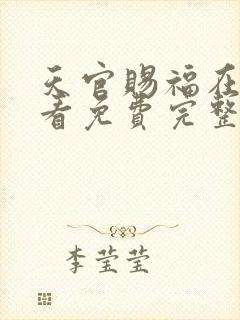 天官赐福在
看免费完整
李莹莹